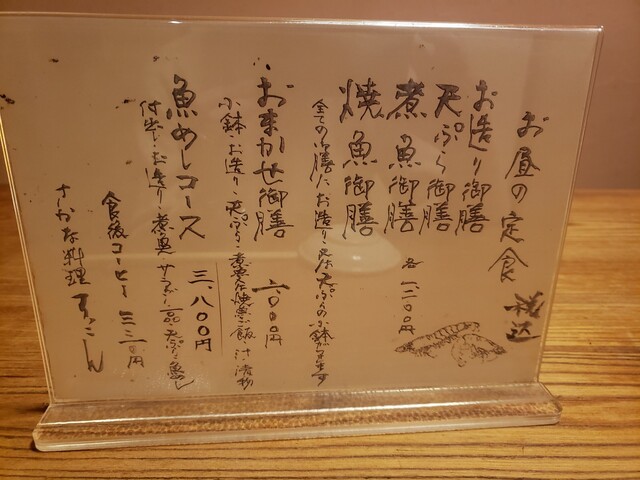 お昼の定食 税込
お造り御膳
天ぷら御膳
煮魚御膳 各一、二〇〇円
焼魚御膳
全ての御膳にお造り又は天ぷらの小鉢が付きます
おまかせ御膳 二、〇〇〇円
小鉢・お造り・天ぷら・煮魚又は焼魚・御飯・汁・漬物
魚めしコース 三、八〇〇円
付出し・お造り・煮魚 サラダ・一品・天ぷら・魚めし
食後コーヒー 三三〇円
さかな料理